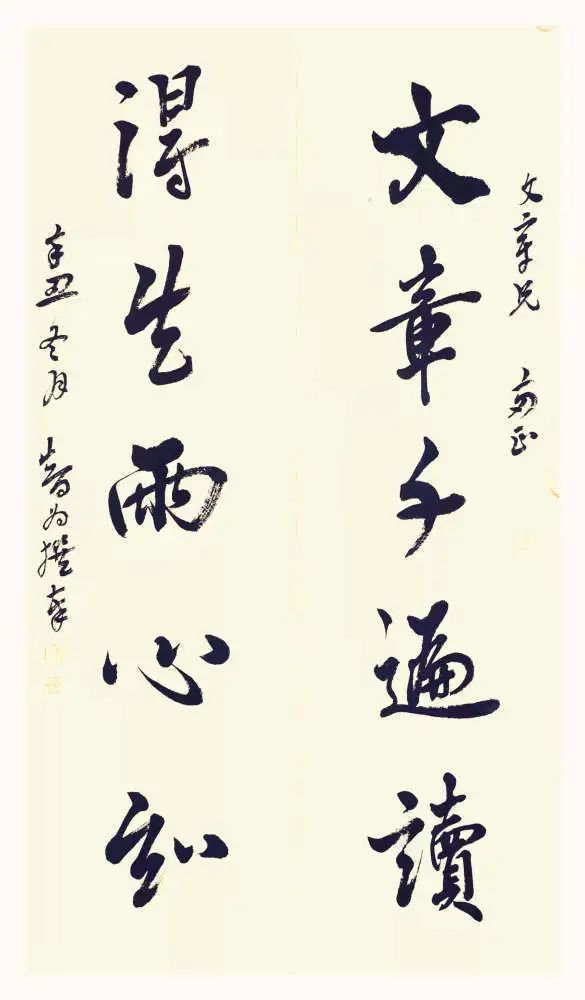 文章兄 正
文章千遍讀
得失兩心知
辛丑冬月 為撰奉